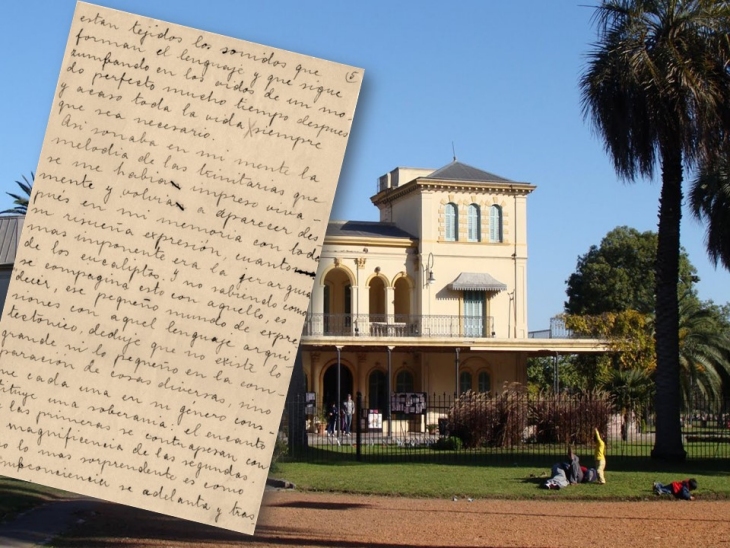 estan tejidos los sonidos que
(5
forman el lenguaje y que sigue
zumbando en los oidos de un mo-
do perfecto mucho tiempo despues
y acaso toda la vida siempre
que sea necesario.
Asi sonaba en mi mente la
melodia de las trinitarias que
se me habian impreso viva-
mente y volvian a aparecer des
pués en mi memoria con toda
su risueña expresión, cuanto
mas imponente era la gerarquia
de los eucaliptos, y no sabiendo como
se compagina esto con aquello, es
decir, ese pequeño mundo de expre
siones con aquel lenguaje arqui
tectónico, deduje que no existe lo
grande ni lo pequeño en la com-
paración de cosas diversas, sino
que cada una en su genero cons
tituye una soberania: el encanto
de las primeras se contrapesan con
magnificencia de las segundas
lo mas sorprendente es como
inconciencia se adelanta y tras